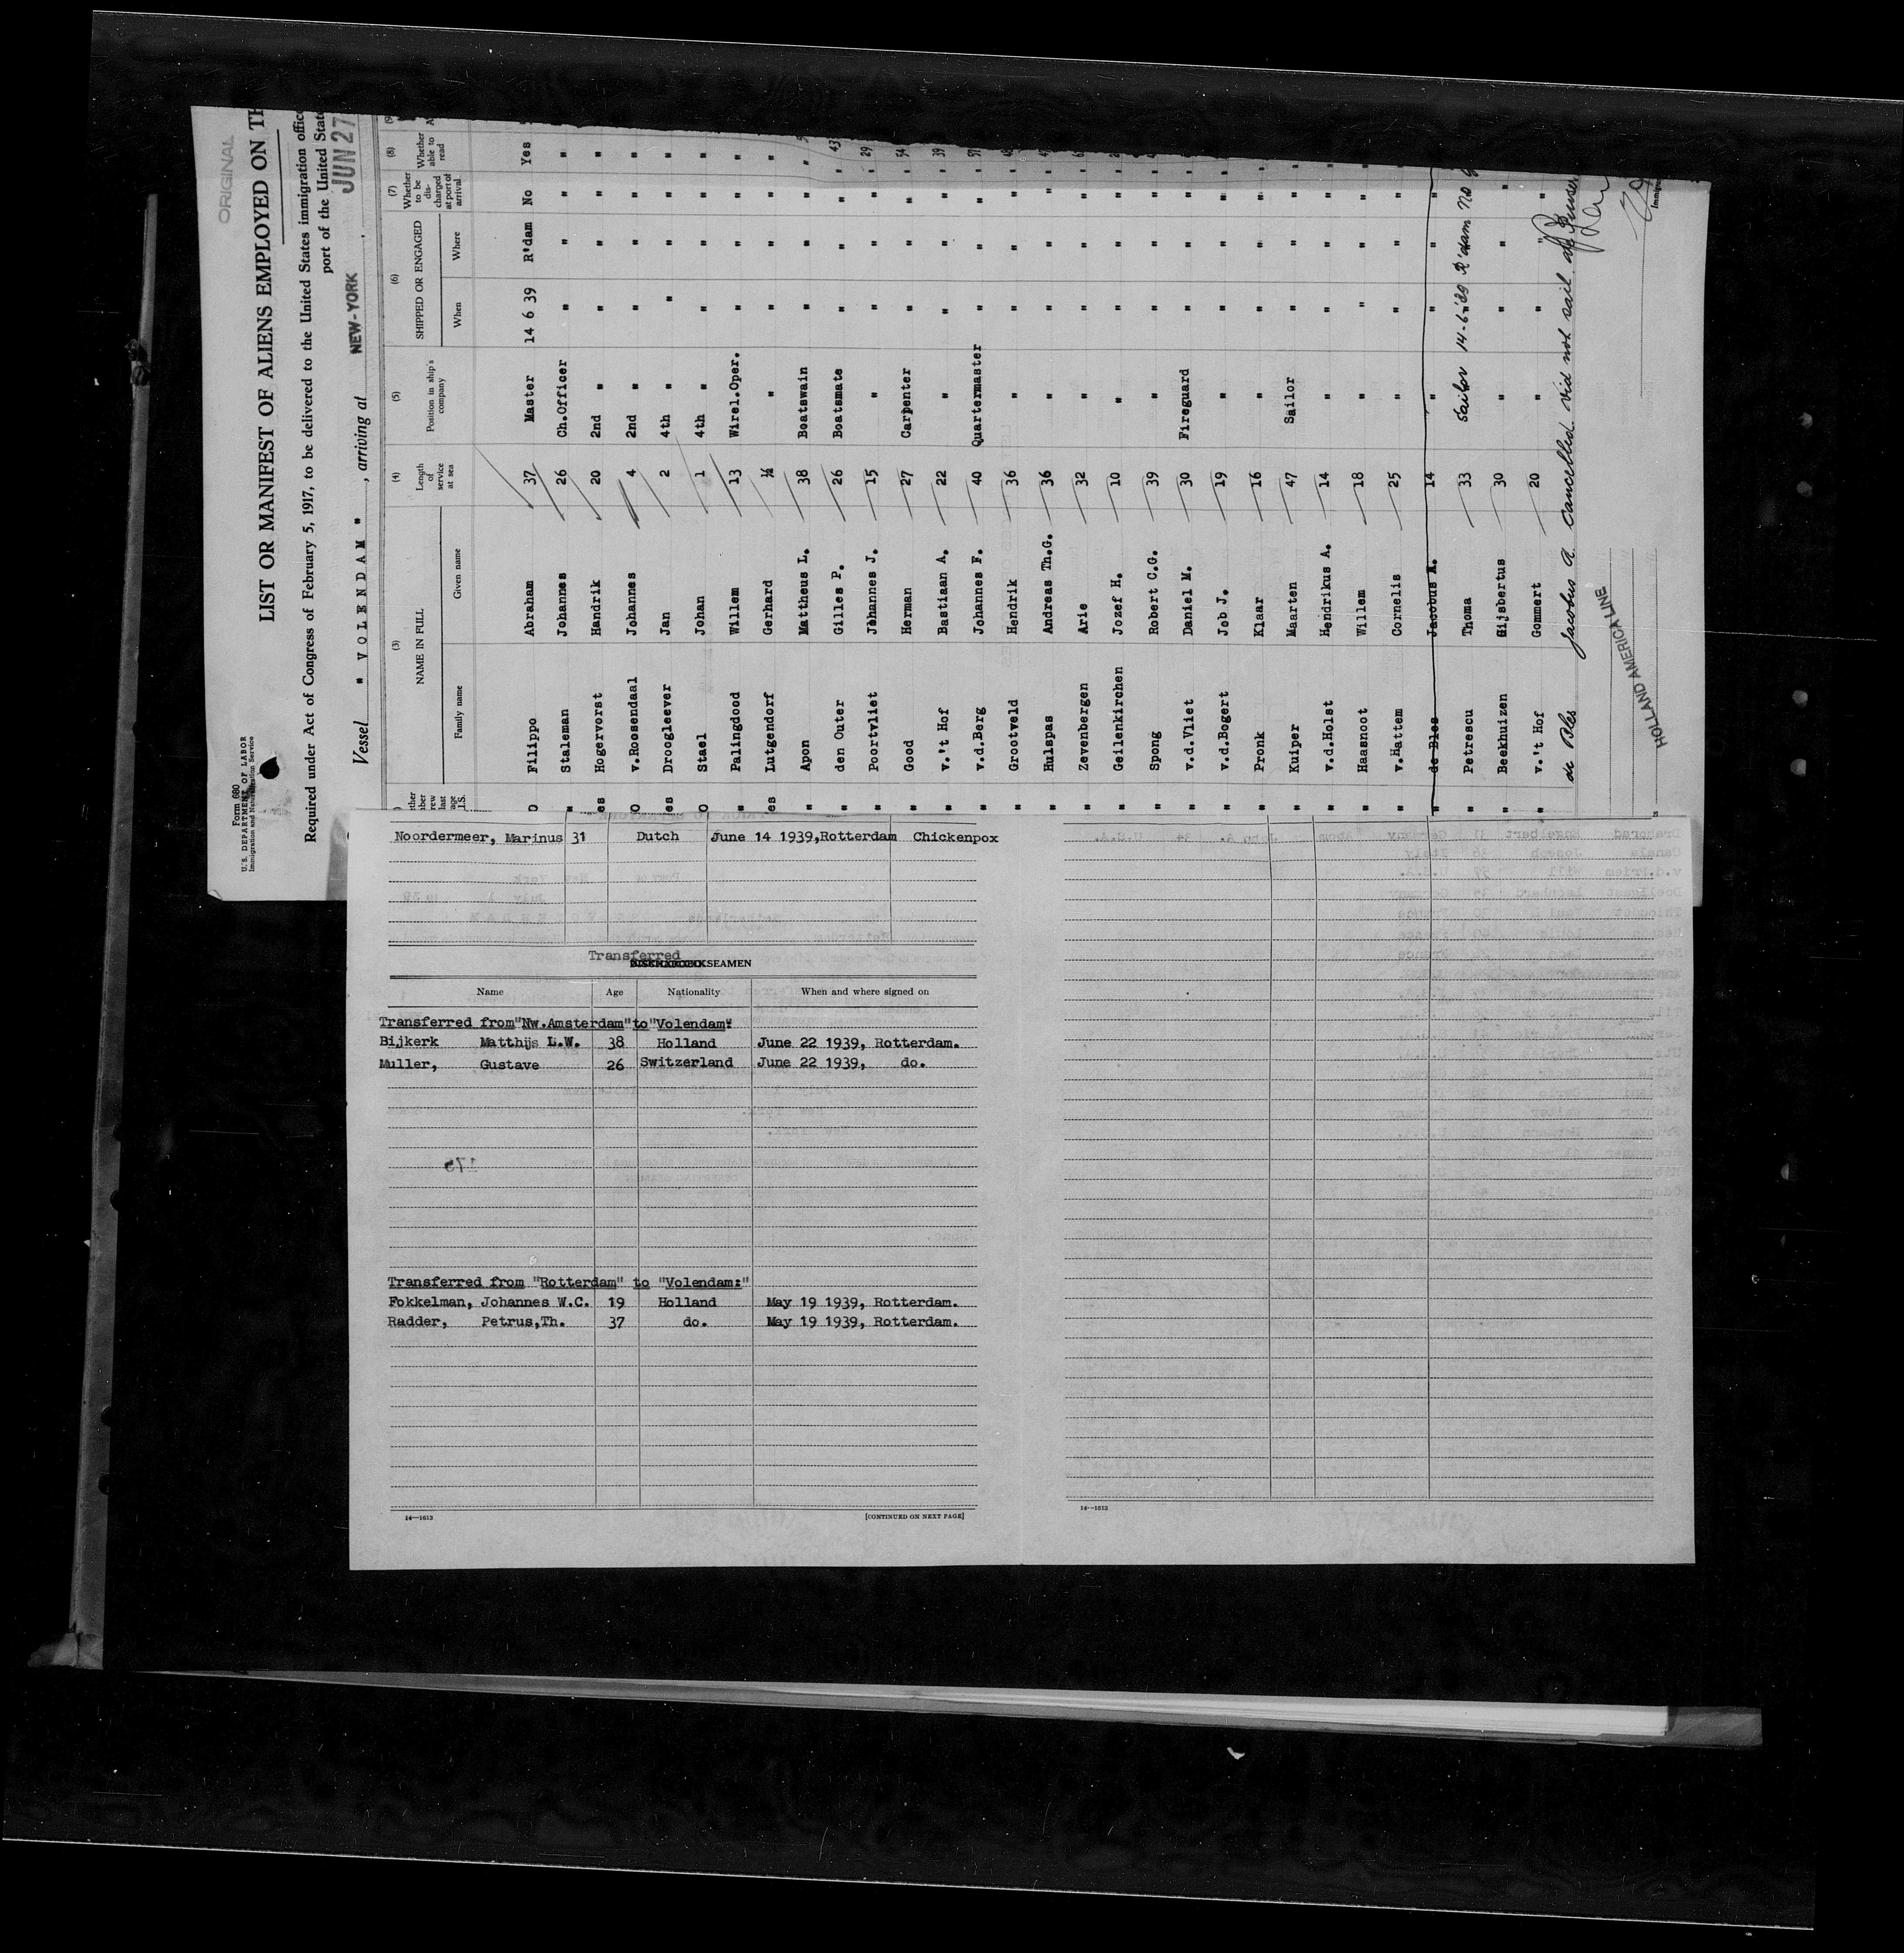 ORIGINAL
Form 680
U.S. DEPARTMENT OF LABOR
Immigration and Naturalization Service
LIST OR MANIFEST OF ALIENS EMPLOYED ON
Required under Act of Congress of February 5, 1917, to be delivered to the United States immigration
port of the United
Vessel " VOLENDAM ", arriving at NEW-YORK, JUN 27
(3) (4) (5) (6) (7) (8)
NAME IN FULL Length of service at sea Position in ship's company SHIPPED OR ENGAGED Whether to be discharged at port of arrival Whether able to read
Family name Given name When Where
Filippo Abraham 37 Master 14 6 39 R'dam No Yes
" Staleman Johannes 26 Ch.Officer " " " "
Hogervorst Handrik 20 2nd " " " " "
v.Roosendaal Johannes 4 2nd " " " " "
Droogleever Jan 2 4th " " " " "
Stael Johan 1 4th " " " " "
" Palingdood Willem 13 Wirel.Oper. " " " "
Lutgendorf Gerhard ½ " " " " "
" Apon Mattheus L. 38 Boatswain " " " "
" den Outer Gilles P. 26 Boatsmate " " " " 43
" Poortvliet Johannes J. 15 " " " " " 29
" Good Herman 27 Carpenter " " " " 54
" v.'t Hof Bastiaan A. 22 " " " " " 39
" v.d.Berg Johannes F. 40 Quartermaster " " " "
" Grootveld Hendrik 36 " " " " "
" Hulspas Andreas Th.G. 36 " " " " "
" Zevenbergen Arie 32 " " " " "
" Geilenkirchen Jozef H. 10 " " " " "
" Spong Robert C.G. 39 " " " " "
" v.d.Vliet Daniel M. 30 Fireguard " " "
" v.d.Bogert Job J. 19 " " " "
" Pronk Klaar 16 " " " "
" Kuiper Maarten 47 Sailor " " "
" v.d.Holst Hendrikus A. 14 " " " "
" Haasnoot Willem 18 " " " "
" v.Hattem Cornelis 25 " " " "
" de Bles Jacobus A. 14 " " " "
" Petrescu Thoma 33 Sailor 14-6-'39 R'dam No
" Beekhuizen Gijsbertus 30 " " " "
" v.'t Hof Gommert 20 " " "
de Bles Jacobus A. Cancelled did not sail.
HOLLAND AMERICA LINE
Noordermeer, Marinus 31 Dutch June 14 1939,Rotterdam Chickenpox
Transferred
SEAMEN
Name Age Nationality When and where signed on
Transferred from"Nw.Amsterdam"to"Volendam"
Bijkerk Matthijs L.W. 38 Holland June 22 1939, Rotterdam.
Muller, Gustave 26 Switzerland June 22 1939, do.
175
Transferred from "Rotterdam" to "Volendam:"
Fokkelman, Johannes W.C. 19 Holland May 19 1939, Rotterdam.
Radder, Petrus,Th. 37 do. May 19 1939, Rotterdam.
14—1613 [CONTINUED ON NEXT PAGE]
14—1613